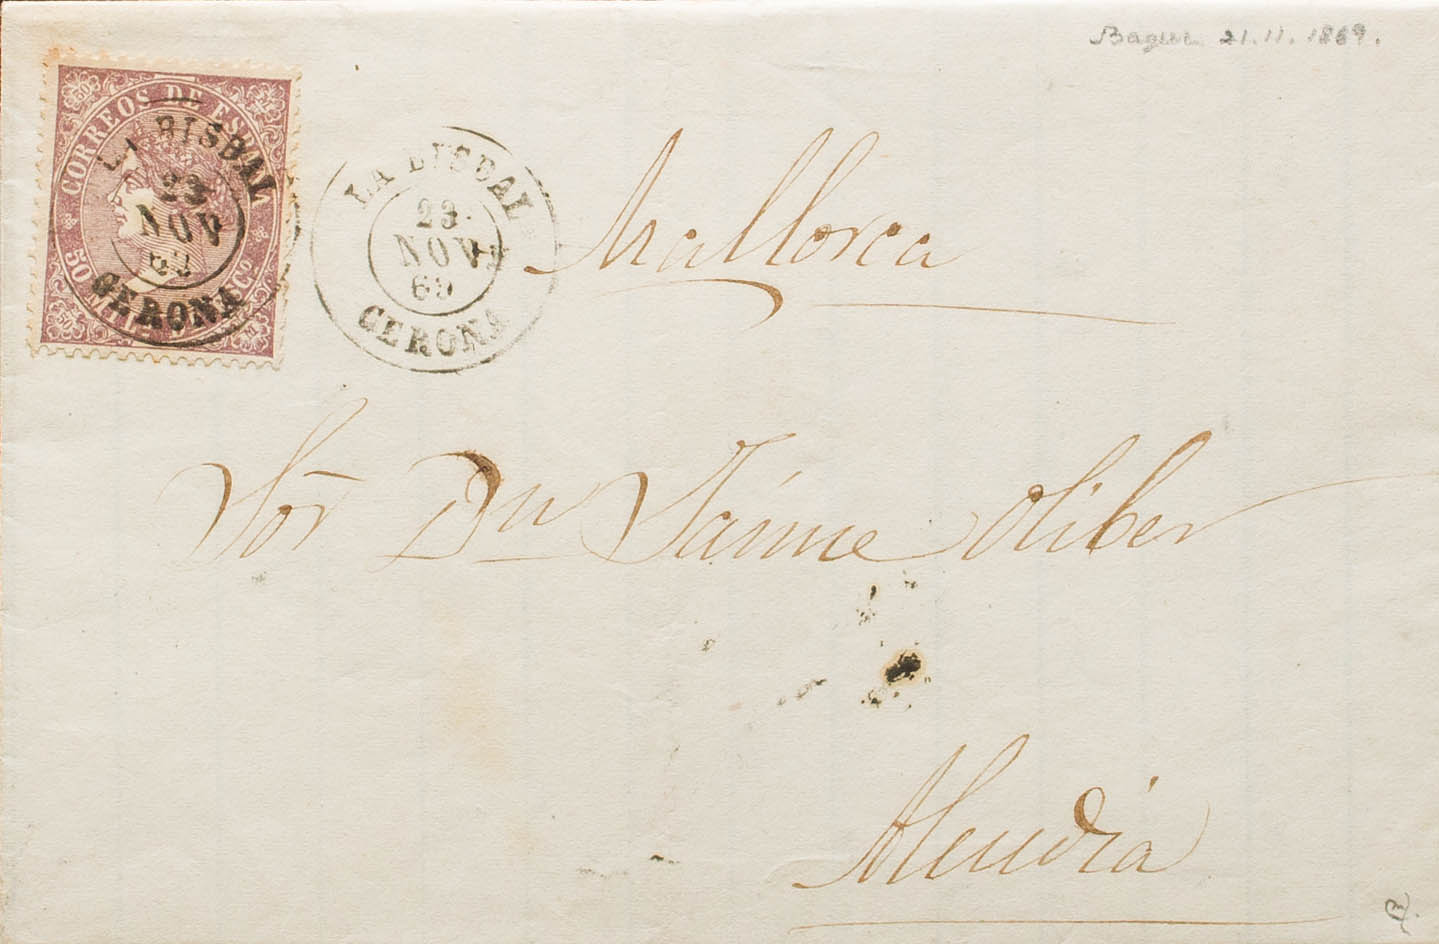 Bagur 21.11.1869.
CORREOS DE ESPAÑA
50 MILS DE ESCO.
50
50
50
LA BISBAL
23
NOV
69
GERONA
LA BISBAL
23
NOV
69
GERONA
Mallorca
Sōr Dn Jaime Oliber
Alcudia